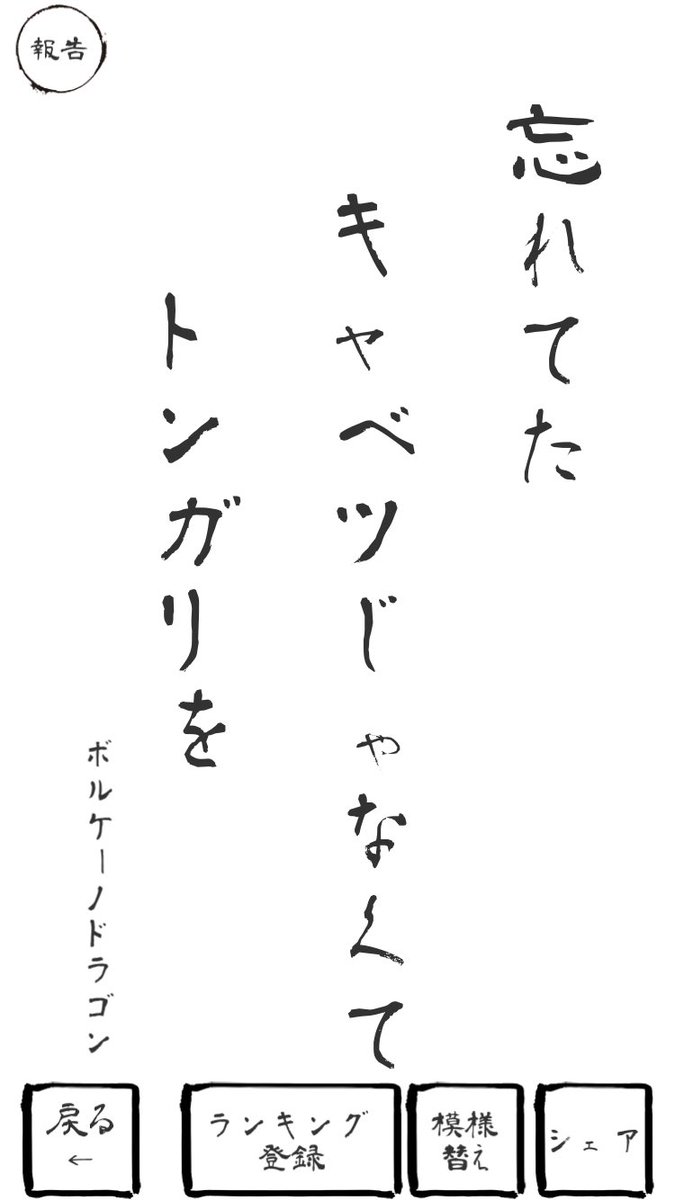 報告
忘れてた
キャベツじゃなくて
トンガリを
ボルケーノドラゴン
戻る
←
ランキング
登録
模様
替え
シェア